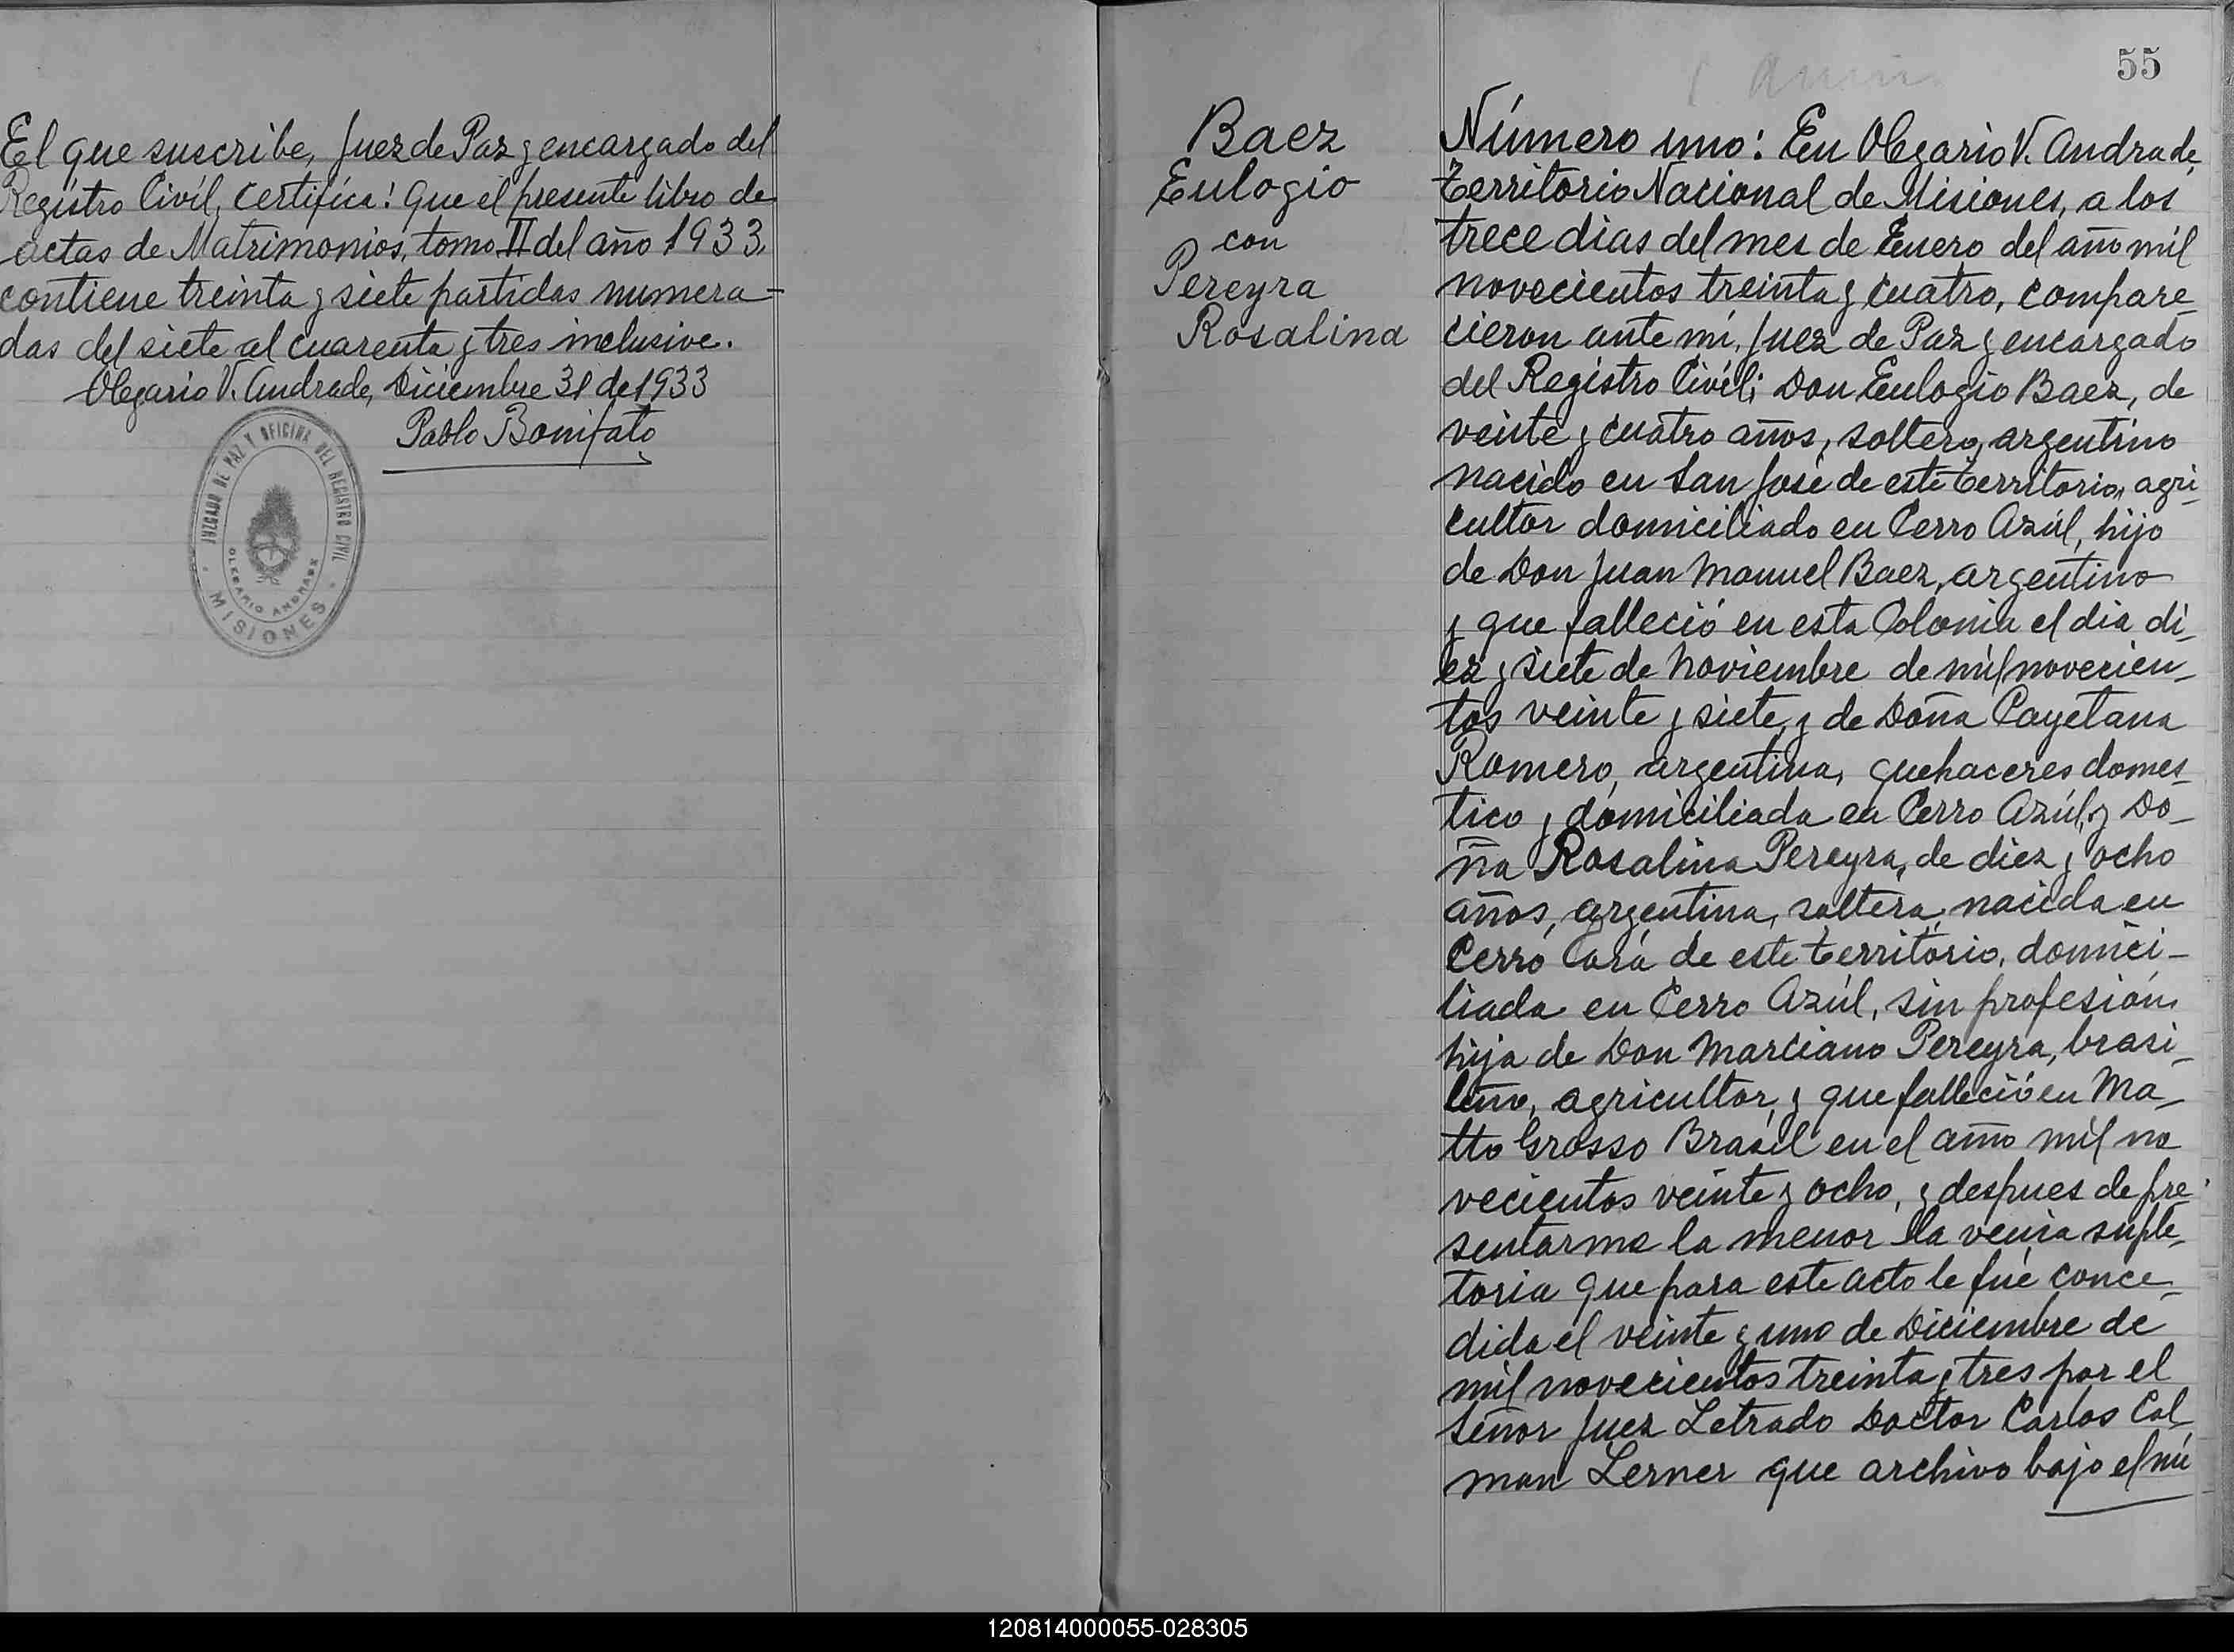 El que suscribe, Juez de Paz y encargado del
Registro Civil, certifica: Que el presente libro de
actas de Matrimonios, tomo II del año 1933,
contiene treinta y siete partidas numera-
das del siete al cuarenta y tres inclusive.
Olegario V. Andrade, Diciembre 31 de 1933
Pablo Bonifato
JUZGADO DE PAZ Y OFICINA DEL REGISTRO CIVIL
OLEGARIO ANDRADE
MISIONES
55
Baez
Eulogio
con
Pereyra
Rosalina
Número uno: En Olegario V. Andrade,
territorio Nacional de Misiones, a los
trece dias del mes de Enero del año mil
novecientos treinta y cuatro, compare_
cieron ante mí, Juez de Paz y encargado
del Registro Civil; Don Eulogio Baez, de
veinte y cuatro años, soltero, argentino
nacido en San José de este territorio, agri_
cultor domiciliado en Cerro Azúl, hijo
de Don Juan Manuel Baez, argentino
y que falleció en esta Colonia el dia di_
ez y siete de Noviembre de mil novecien_
tos veinte y siete, y de Doña Cayetana
Romero, argentina, quehaceres domes_
tico y domiciliada en Cerro Azúl, y Do_
ña Rosalina Pereyra, de diez y ocho
años, argentina, soltera, nacida en
Cerro Corá de este territorio, domici_
liada en Cerro Azúl, sin profesión,
hija de Don Marciano Pereyra, brasi_
leño, agricultor, y que falleció en Ma_
tto Grosso Brasil en el año mil no
vecientos veinte y ocho, y despues de pre_
sentarme la menor la venia suple_
toria que para este acto le fué conce_
dida el veinte y uno de Diciembre de
mil novecientos treinta y tres por el
Señor Juez Letrado Doctor Carlos Cal_
man Lerner que archivo bajo el nú
120814000055-028305